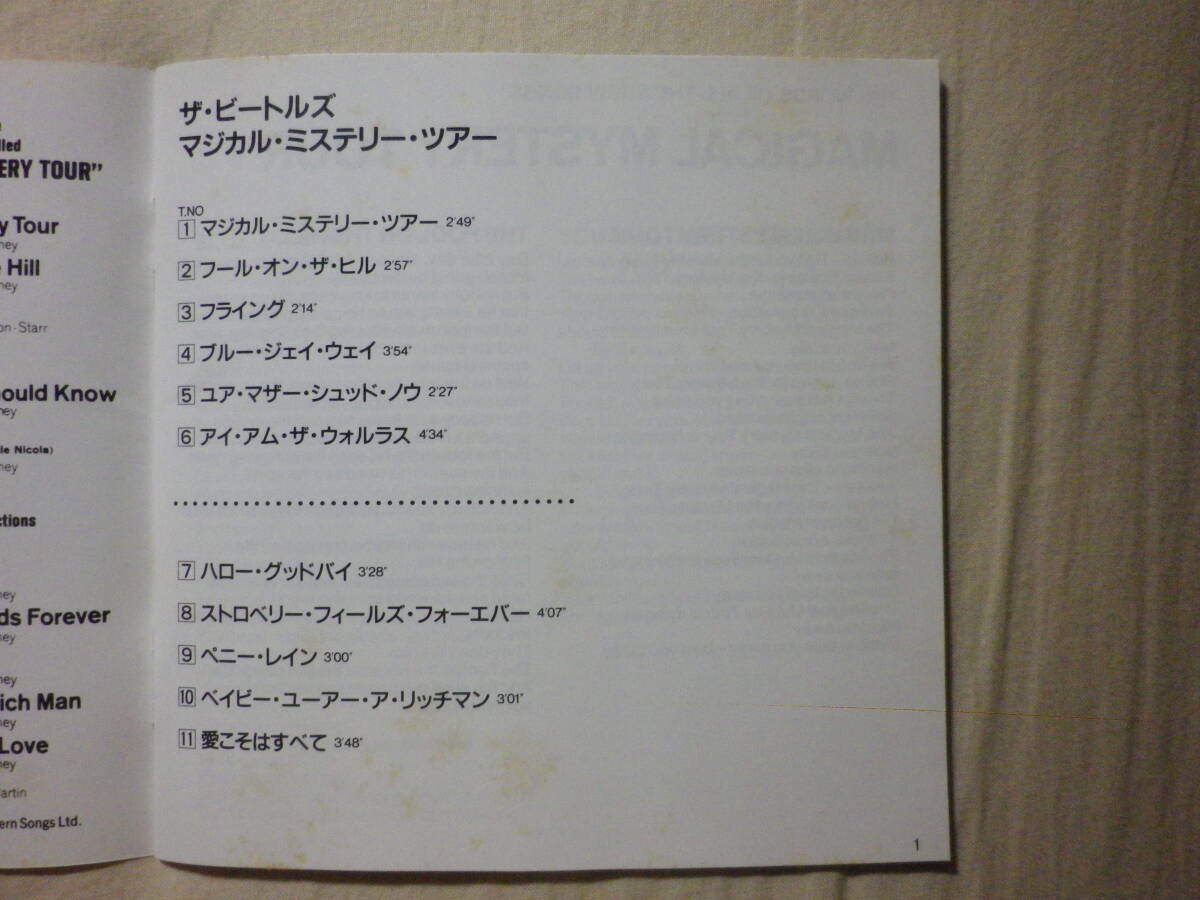 ERY TOUR”
y Tour
Hill
on-Starr
ould Know
le Nicola)
ctions
ds Forever
ich Man
Love
artin
ern Songs Ltd.
ザ・ビートルズ
マジカル・ミステリー・ツアー
T.NO
1 マジカル・ミステリー・ツアー 2'49"
2 フール・オン・ザ・ヒル 2'57"
3 フライング 2'14"
4 ブルー・ジェイ・ウェイ 3'54"
5 ユア・マザー・シュッド・ノウ 2'27"
6 アイ・アム・ザ・ウォルラス 4'34"
7 ハロー・グッドバイ 3'28"
8 ストロベリー・フィールズ・フォーエバー 4'07"
9 ペニー・レイン 3'00"
10 ベイビー・ユーアー・ア・リッチマン 3'01"
11 愛こそはすべて 3'48"
1